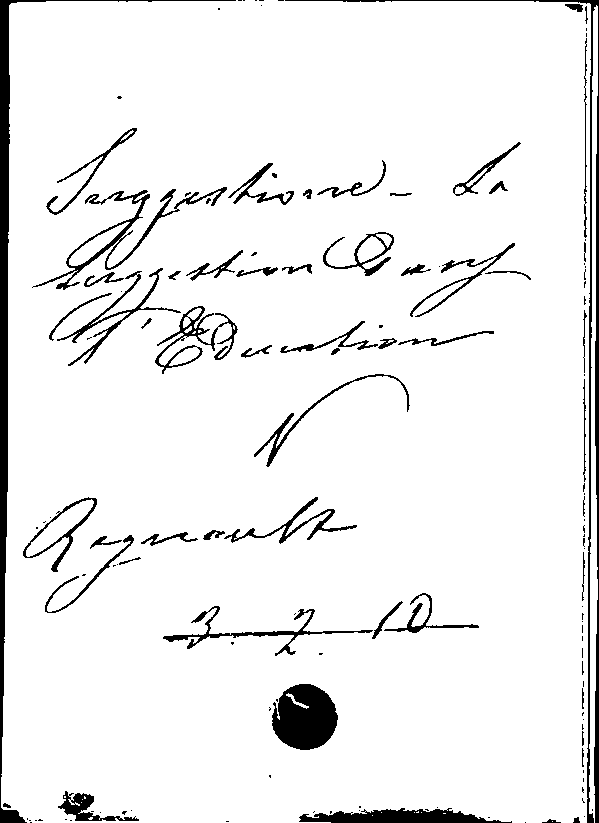 Suggestione - La
Suggestion dans
l'Education
N
Regnault
3. 2. 10